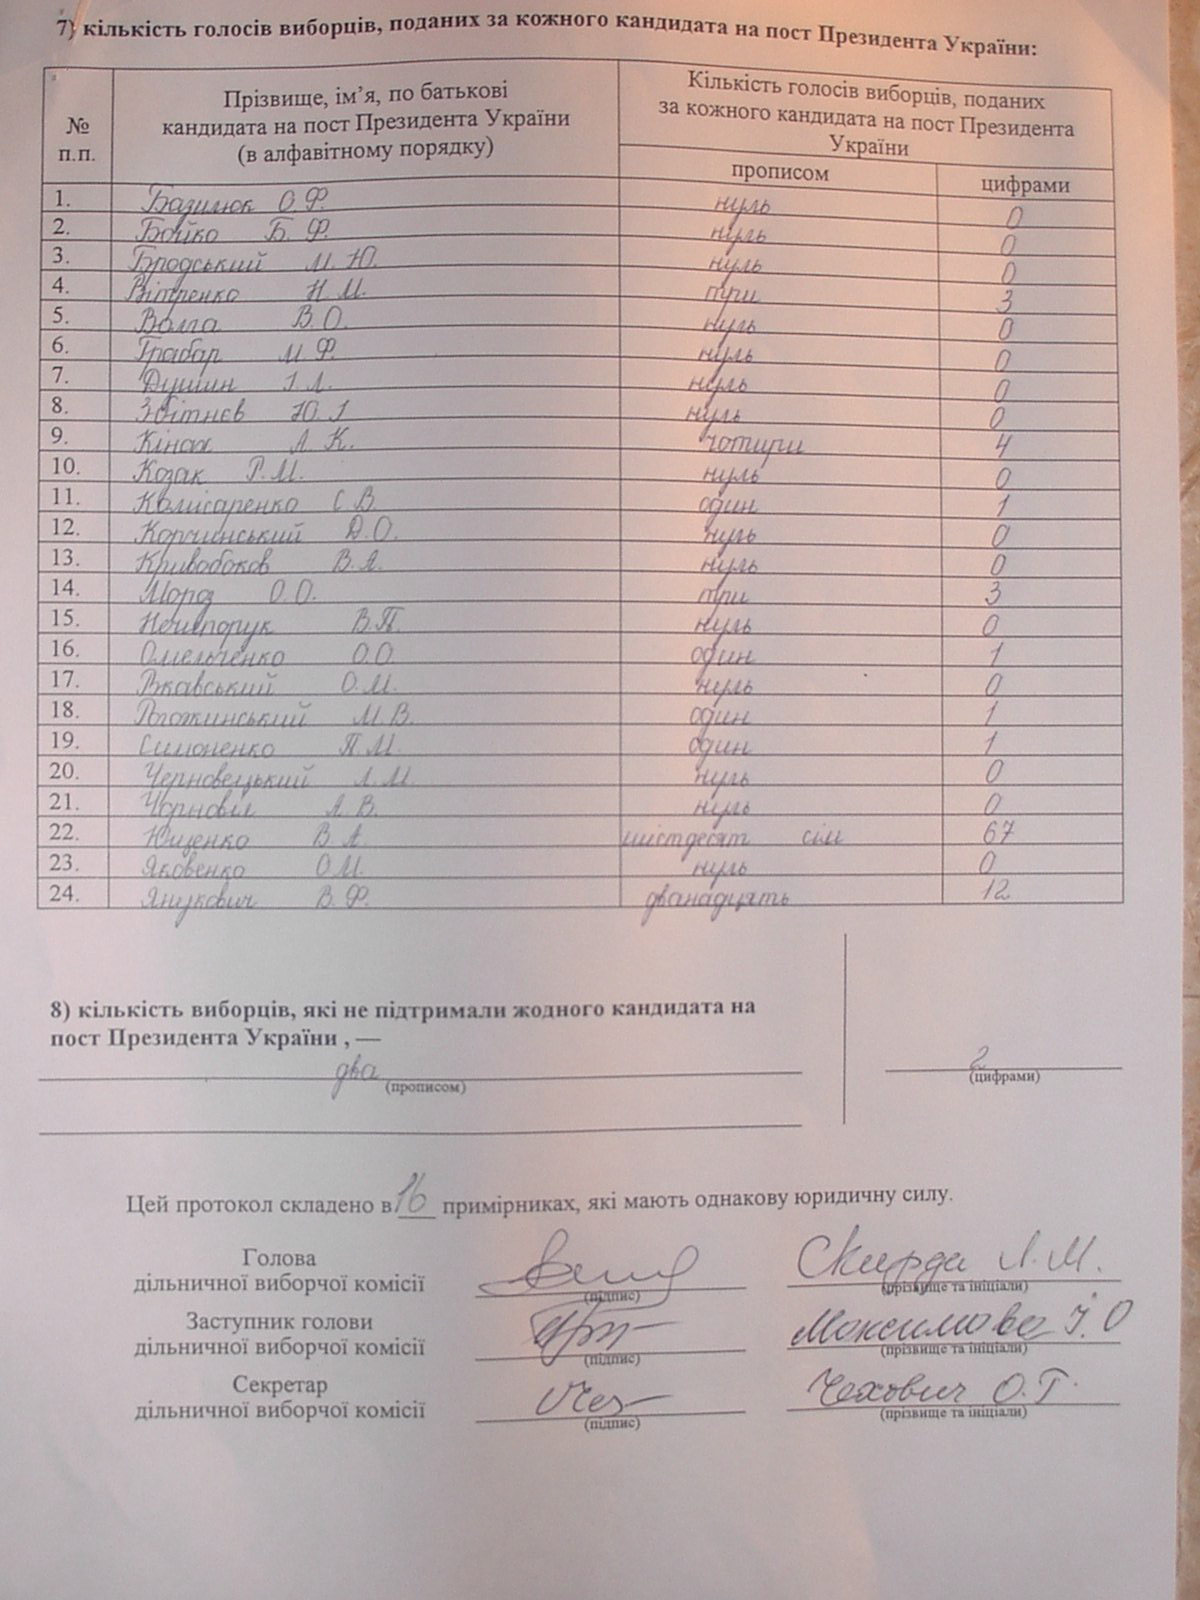 7) кількість голосів виборців, поданих за кожного кандидата на пост Президента України:
№ п.п.
Прізвище, ім’я, по батькові
кандидата на пост Президента України
(в алфавітному порядку)
Кількість голосів виборців, поданих
за кожного кандидата на пост Президента
України
прописом цифрами
1. Базилюк О.Ф. нуль 0
2. Бойко Б. Ф. нуль 0
3. Бродський М. Ю. нуль 0
4. Вітренко Н. М. три 3
5. Волга В. О. нуль 0
6. Грабар М Ф. нуль 0
7. Душин І. Л. нуль 0
8. Збітнєв Ю. І нуль 0
9. Кінах А. К. чотири 4
10. Козак Р. М. нуль 0
11. Комісаренко С В. один 1
12. Корчинський Д.О. нуль 0
13. Кривобоков В.А. нуль 0
14. Мороз О.О. три 3
15. Нечипорук В.П. нуль 0
16. Омельченко О.О. один 1
17. Ржавський О.М. нуль 0
18. Рогожинський М.В. один 1
19. Симоненко П.М. один 1
20. Черновецький Л.М. нуль 0
21. Чорновіл А В. нуль 0
22. Ющенко В А. шістдесят сім 67
23. Яковенко О.М. нуль 0
24. Янукович В. Ф. дванадцять 12
8) кількість виборців, які не підтримали жодного кандидата на
пост Президента України , —
два 2
(прописом) (цифрами)
Цей протокол складено в 16 примірниках, які мають однакову юридичну силу.
Голова
дільничної виборчої комісії Скирда Л.М.
(підпис) (прізвище та ініціали)
Заступник голови
дільничної виборчої комісії Максимова І. О
(підпис) (прізвище та ініціали)
Секретар
дільничної виборчої комісії Чехович О.Г.
(підпис) (прізвище та ініціали)